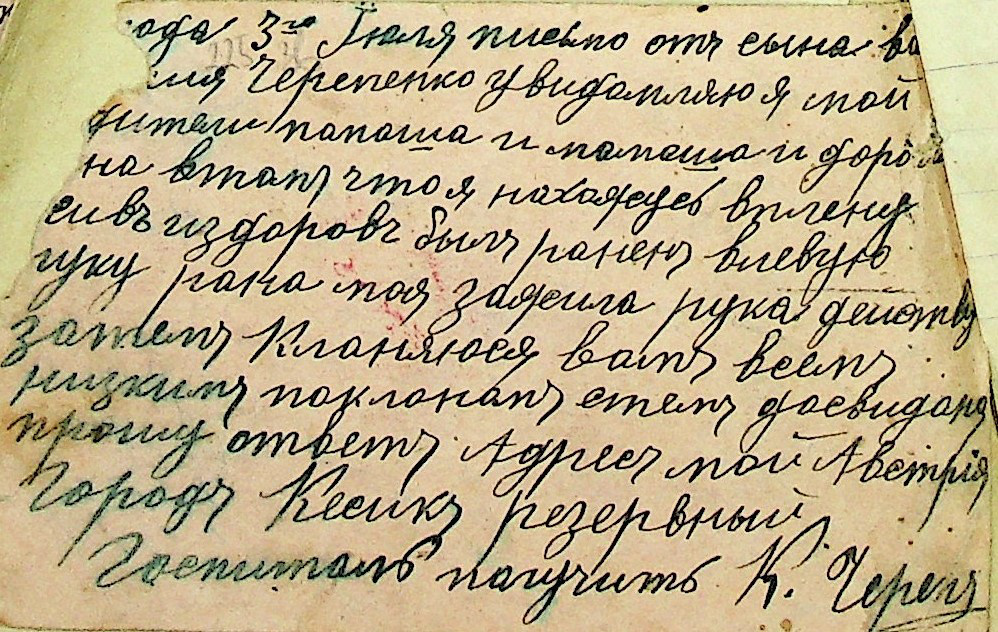 ода 3го Іюля письмо отъ сына ва
лия Черепенко увидамляю я мои
дители папаша и мамаша и доро
на втамъ что я нахажусь вплену
сивъ издоровъ былъ раненъ влевую
руку рана моя зажила рука действу
затемъ Кланяюся вамъ всемъ
низкимъ поклонамъ стемъ досвиданя
прошу ответъ Адресъ мой Австрія
Городъ Кесикъ резервный
Госпиталь палучить К. Череп